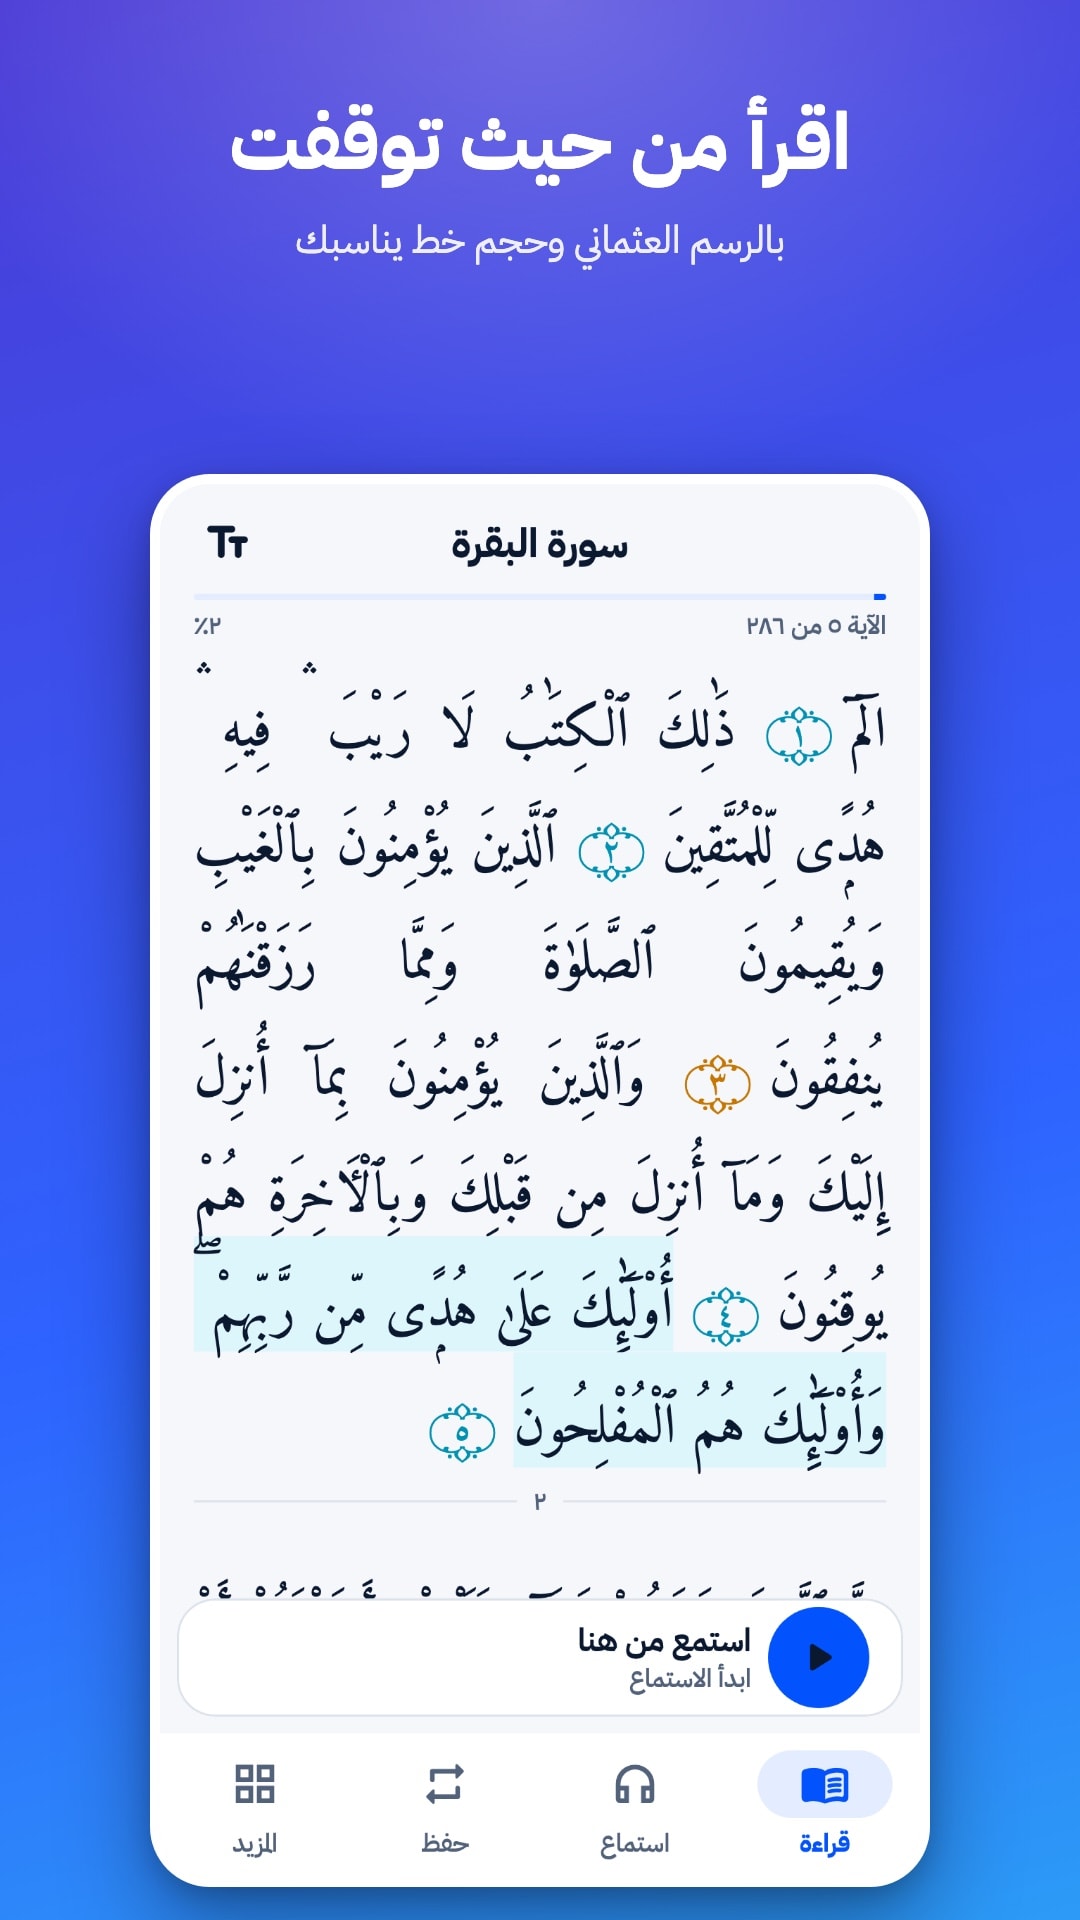 اقرأ من حيث توقفت
بالرسم العثماني وحجم خط يناسبك
سورة البقرة
الآية ٥ من ٢٨٦
٢٪
الٓمٓ ١ ذَٰلِكَ ٱلْكِتَٰبُ لَا رَيْبَ ۛ فِيهِ ۛ
هُدًۭى لِّلْمُتَّقِينَ ٢ ٱلَّذِينَ يُؤْمِنُونَ بِٱلْغَيْبِ
وَيُقِيمُونَ ٱلصَّلَوٰةَ وَمِمَّا رَزَقْنَٰهُمْ
يُنفِقُونَ ٣ وَٱلَّذِينَ يُؤْمِنُونَ بِمَآ أُنزِلَ
إِلَيْكَ وَمَآ أُنزِلَ مِن قَبْلِكَ وَبِٱلْـَٔاخِرَةِ هُمْ
يُوقِنُونَ ٤ أُو۟لَٰٓئِكَ عَلَىٰ هُدًۭى مِّن رَّبِّهِمْ ۖ
وَأُو۟لَٰٓئِكَ هُمُ ٱلْمُفْلِحُونَ ٥
٢
استمع من هنا
ابدأ الاستماع
قراءة
استماع
حفظ
المزيد